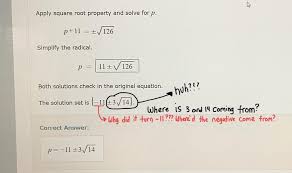 Apply square root property and solve for p.
p + 11 = ±√126
Simplify the radical.
p = 11 ± √126
Both solutions check in the original equation.
The solution set is {-11 ± 3√14}.
huh???
Where is 3 and 14 coming from?
Why did it turn -11??? Where'd the negative come from?
Correct Answer:
p = -11 ± 3√14